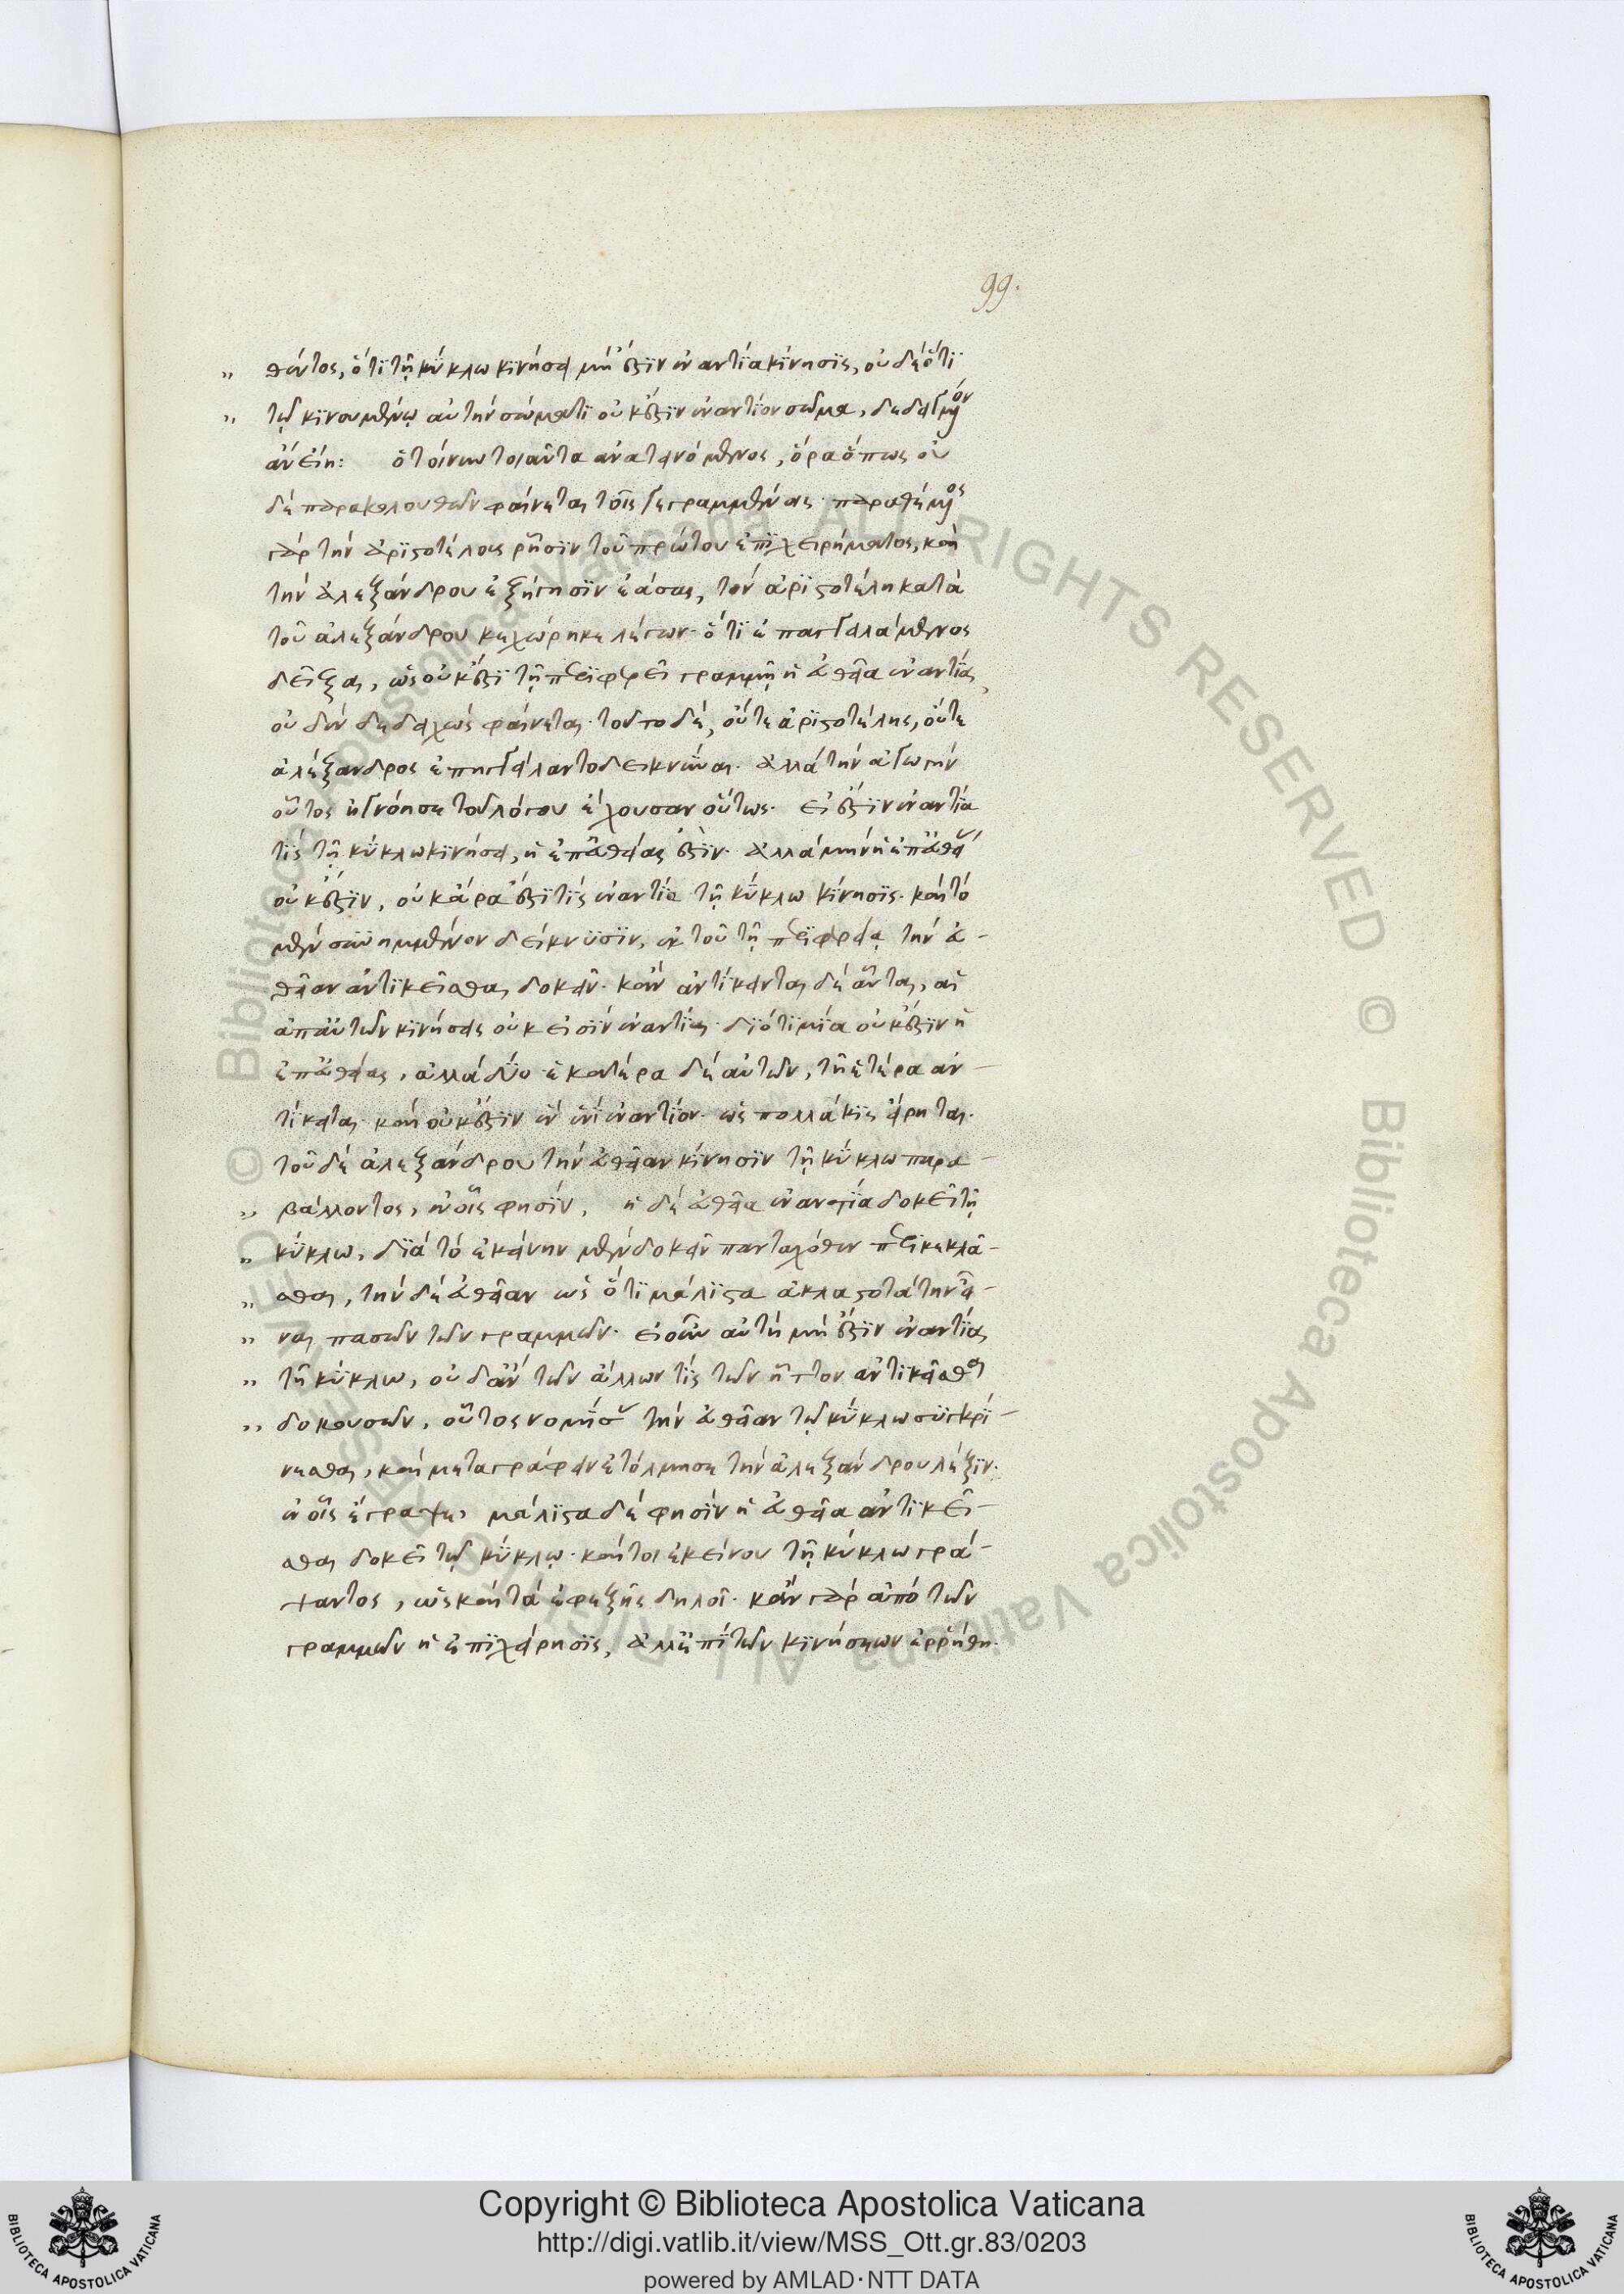 99.
„ θέντος, ὅτι τῇ κύκλω κινήσει μὴ ἔστιν ἐναντία κίνησις, οὐδὲ ὅτι
„ τῷ κινουμένῳ αὐτὴν σώματι οὐκ ἔστιν ἐναντίον σῶμα, δεδειγμένον
ἂν εἴη: ὁ τοίνυν τοιαῦτα ἀνατεινόμενος, ὅρα ὅπως οὐ
δὲ παρακολουθῶν φαίνεται τοῖς γεγραμμένοις. παραθέμενος
γὰρ τὴν ἀριστοτέλους ῥῆσιν τοῦ πρώτου ἐπιχειρήματος, καὶ
τὴν ἀλεξάνδρου ἐξήγησιν ἐάσας, τὸν ἀριστοτέλη κατὰ
τοῦ ἀλεξάνδρου κεχώρηκε λέγων. ὅτι ἐπαγγειλάμενος
δεῖξαι, ὡς οὐκ ἔστι τῇ περιφερεῖ γραμμῇ ἡ εὐθεῖα ἐναντία,
οὐδὲν δεδειχὼς φαίνεται. τοῦτο δὲ, οὔτε ἀριστοτέλης, οὔτε
ἀλέξανδρος ἐπηγγείλαντο δεικνύναι. ἀλλὰ τὴν ἀγωγὴν
οὗτος ἠγνόησε τοῦ λόγου ἔχουσαν οὕτως. εἰ ἔστιν ἐναντία
τὶς τῇ κύκλω κινήσει, ἡ ἐπ' εὐθείας ἔστιν. ἀλλὰ μὴν ἡ ἐπ' εὐθείας
οὐκ ἔστιν, οὐκ ἄρα ἔστι τὶς ἐναντία τῇ κύκλω κίνησις. καὶ τὸ
μὲν συνημμένον δείκνυσιν, ἐκ τοῦ τῇ περιφερεία τὴν εὐ-
θεῖαν ἀντικεῖσθαι δοκεῖν. κἂν ἀντίκεινται δὲ αὗται, αἱ
ἀπ' αὐτῶν κινήσεις οὐκ εἰσὶν ἐναντίαι. διότι μία οὐκ ἔστιν ἡ
ἐπ' εὐθείας, ἀλλὰ δύο. ἑκατέρα δὲ αὐτῶν, τῇ ἑτέρα ἀν-
τίκειται. καὶ οὐκ ἔστιν ἓν ἑνὶ ἐναντίον. ὡς πολλάκις εἴρηται.
τοῦ δὲ ἀλεξάνδρου τὴν εὐθεῖαν κίνησιν τῇ κύκλω παρα-
„ βάλλοντος, ἐν οἷς φησὶν, ἡ δὲ εὐθεῖα ἐναντία δοκεῖ τῇ
„ κύκλω, διὰ τὸ ἐκείνην μὲν δοκεῖν πανταχόθεν περικεκλά-
„ σθαι, τὴν δὲ εὐθεῖαν ὡς ὅτι μάλιστα ἀκλαστοτάτην εἶ-
„ ναι πασῶν τῶν γραμμῶν. εἰ οὖν αὐτὴ μὴ ἔστιν ἐναντία
„ τῇ κύκλω, οὐδ' ἂν τῶν ἄλλων τὶς τῶν ἧττον ἀντικεῖσθαι
„ δοκουσῶν, οὗτος νομίσας τὴν εὐθεῖαν τῷ κύκλω συγκρί-
νεσθαι, καὶ μεταγράφειν ἐτόλμησε τὴν ἀλεξάνδρου λέξιν.
ἐν οἷς ἔγραψε, μάλιστα δὲ φησὶν ἡ εὐθεῖα ἀντικεῖ-
σθαι δοκεῖ τῷ κύκλῳ. καίτοι ἐκείνου τῇ κύκλω γρά-
ψαντος, ὡς καὶ τὰ ἐφεξῆς δηλοῖ. κἂν γὰρ ἀπὸ τῶν
γραμμῶν ἡ ἐπιχείρησις, ἀλλ' ἐπὶ τῶν κινήσεων ἐρρήθη.
© Biblioteca Apostolica Vaticana ALL RIGHTS RESERVED
Copyright © Biblioteca Apostolica Vaticana
http://digi.vatlib.it/view/MSS_Ott.gr.83/0203
powered by AMLAD·NTT DATA
BIBLIOTECA APOSTOLICA VATICANA
BIBLIOTECA APOSTOLICA VATICANA